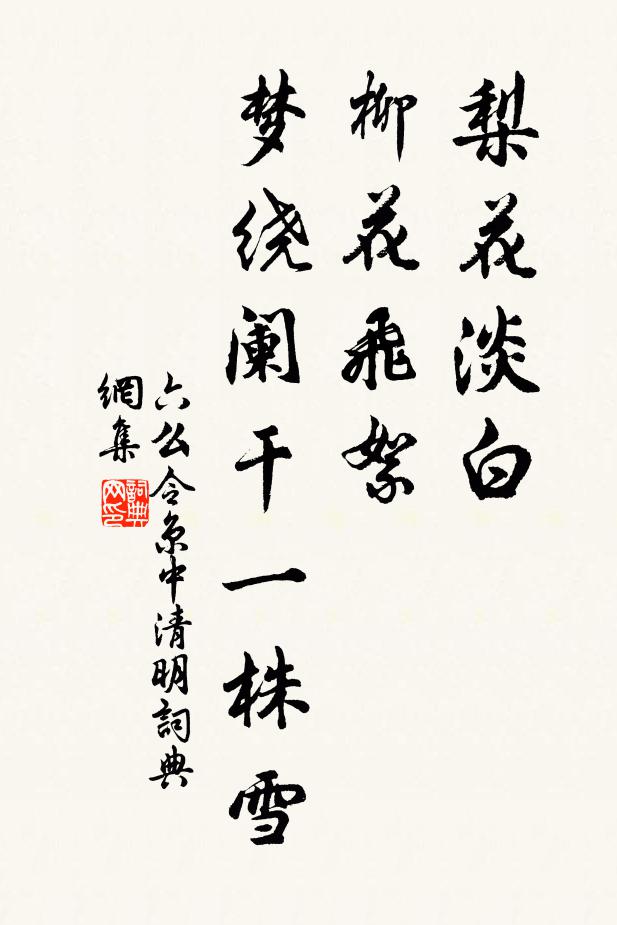 梨花淡白
柳花飛絮
梦绕阑干一株雪
六么令京中清明詞典
網集
詞典
网印